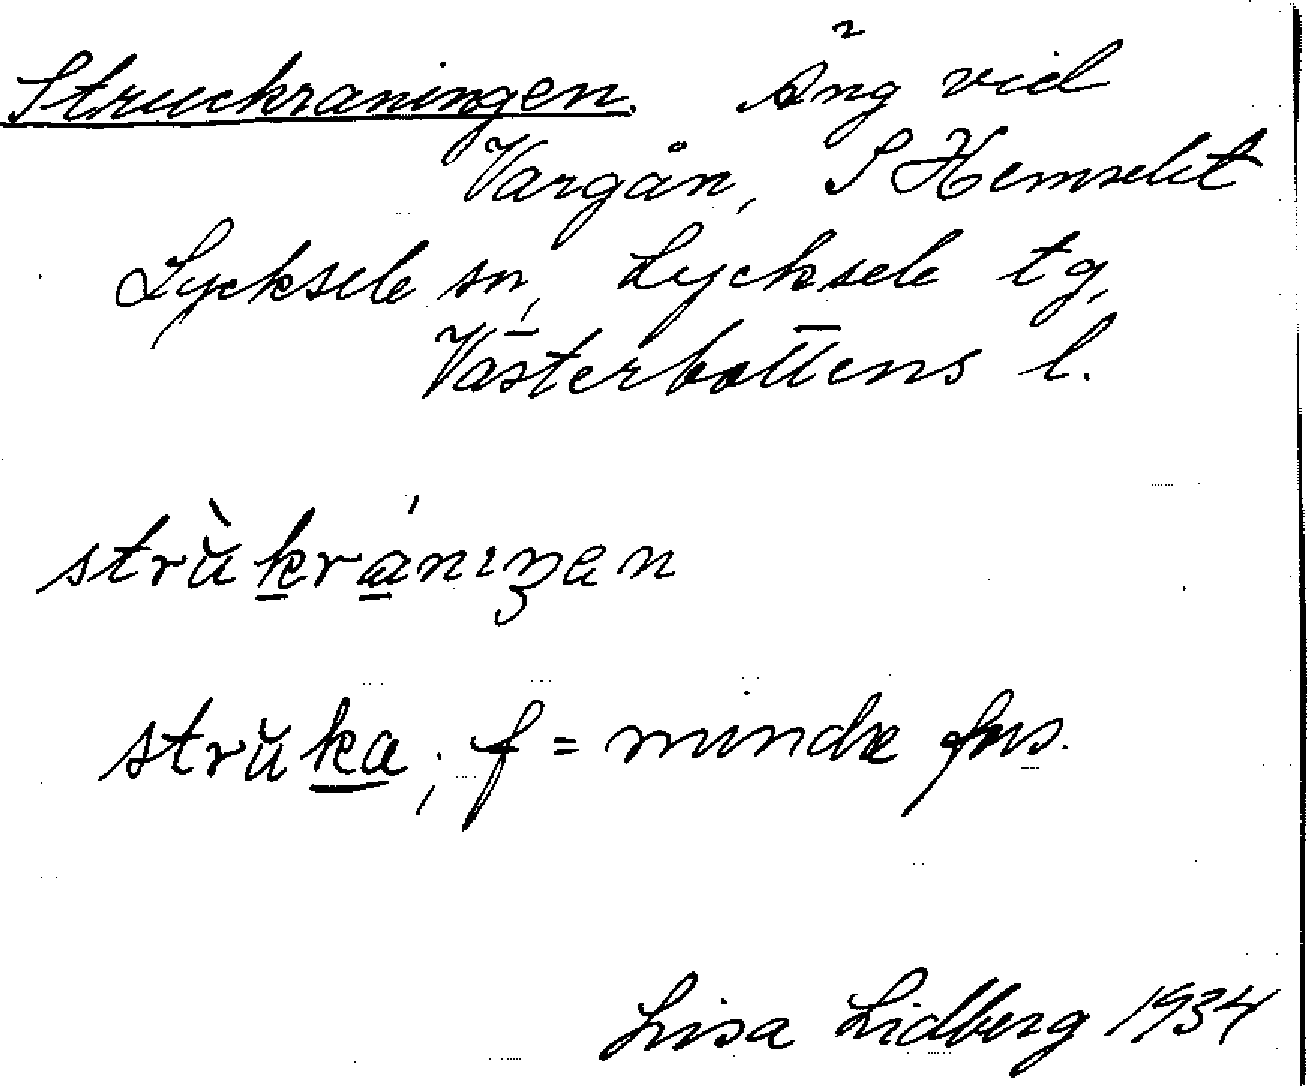 Struckraningen. Äng vid
Vargån, S Hemselet
Lycksele sn, Lycksele tg,
Västerbottens l.
strùkrániŋen
strŭka, f = mindre fors.
Lisa Lidberg 1934